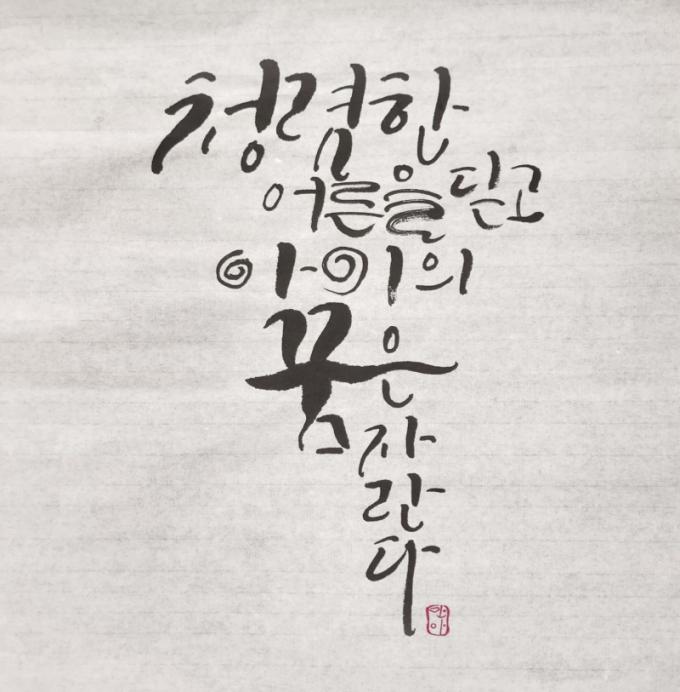 청렴한
어른을 닮고
아이의
꿈은
자
란
다